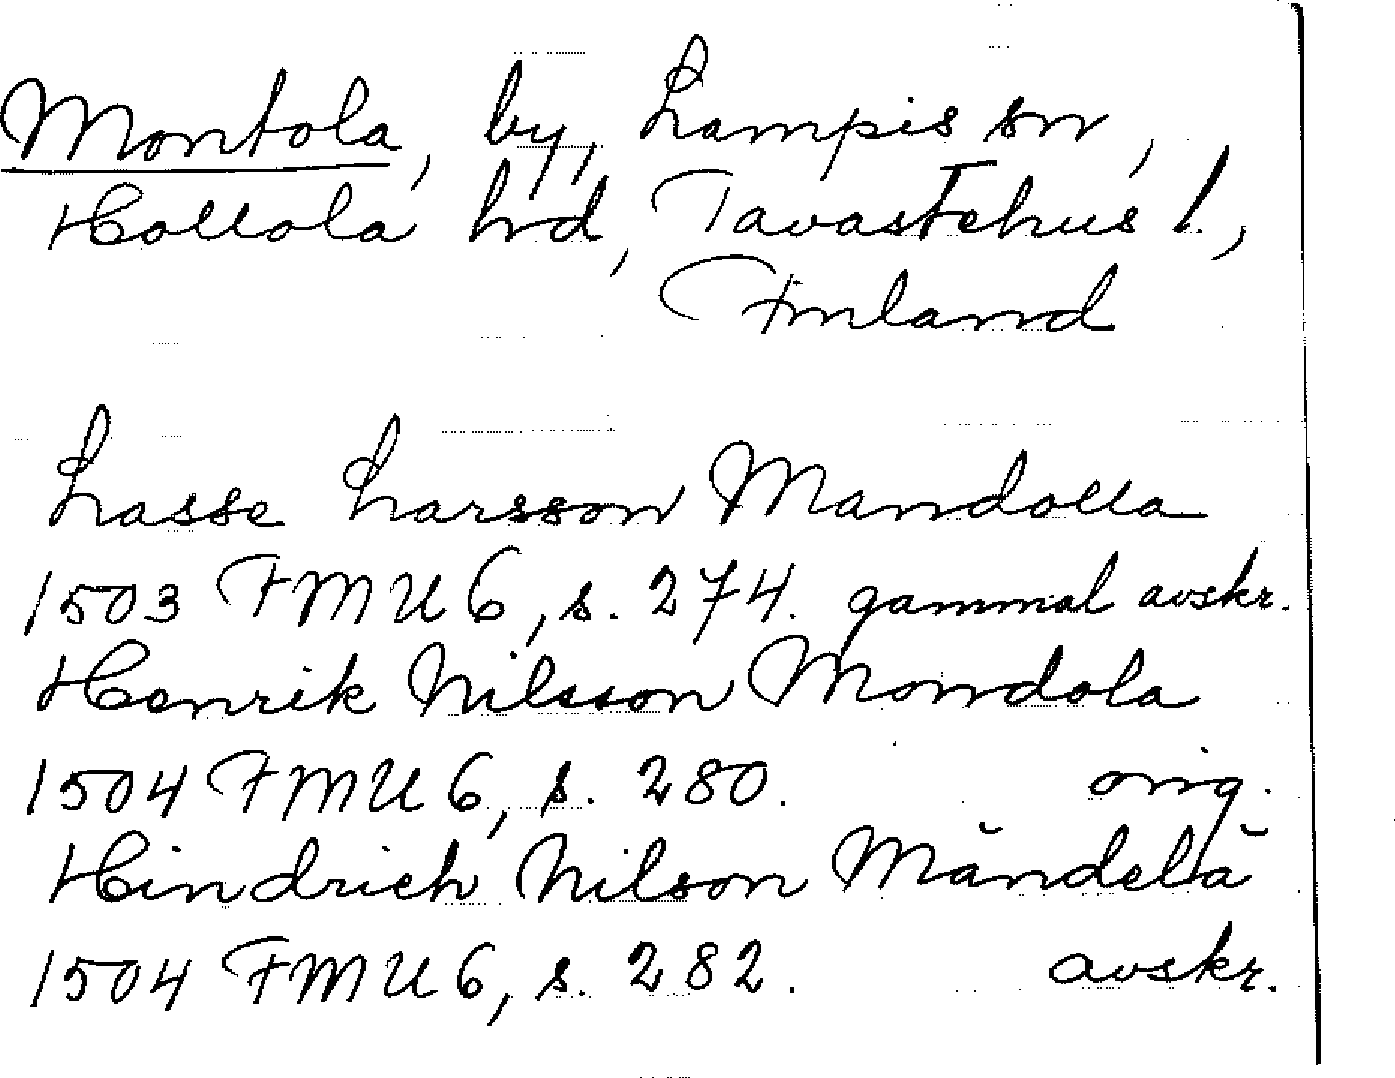 Montola, by, Lampis sn,
Hollola hrd, Tavastehus l.,
Finland
Lasse Larsson Mandolla
1503 FMU 6, s. 274. gammal avskr.
Henrik Nilsson Mondola
1504 FMU 6, s. 280. orig.
Hindrich Nilson Măndelă
1504 FMU 6, s. 282. avskr.